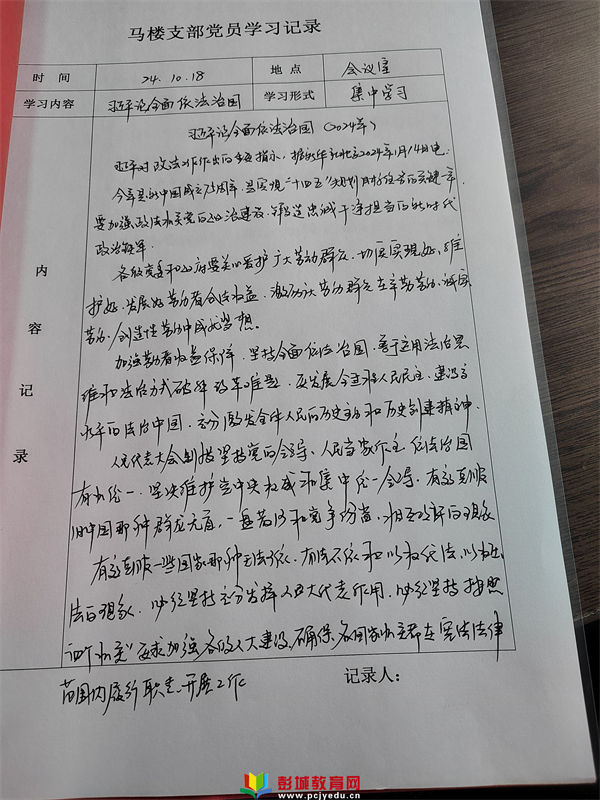 马楼支部党员学习记录
时 间 24.10.18 地 点 会议室
学习内容 习近平论全面依法治国 学习形式 集中学习
习近平论全面依法治国(2024年)
习近平对政法工作作出的重要指示,据新华社北京2024年1月14日电
今年是新中国成立75周年,是实现"十四五"规划目标任务的关键一年,
要加强政法机关党的政治建设,锻造忠诚干净担当的新时代
政法铁军.
各级党委和政府要关心爱护广大劳动群众,切实实现好、维
护好、发展好劳动者合法权益,激励广大劳动群众在辛勤劳动、诚实
劳动、创造性劳动中成就梦想。
加强劳动者权益保障.坚持全面依法治国,善于运用法治思
维和法治方式破解改革难题,发展全过程人民民主,建设高
水平的法治中国,充分激发全体人民的历史主动和历史创造精神.
人民代表大会制度坚持党的领导、人民当家作主、依法治国
有机统一,坚决维护党中央权威和集中统一领导,有效克服
旧中国那种群龙无首,一盘散沙和党争纷沓、相互攻讦的现象
有效克服一些国家那种无法可依,有法不依和以权代法,以权压
法的现象,必须坚持充分发挥人民大代表作用,必须坚持按照
"四个机关"要求加强各级人大建设,确保各国家机关都在宪法法律
范围内履行职责、开展工作
内
容
记
录
记录人:
彭城教育网
www.pcjyedu.cn